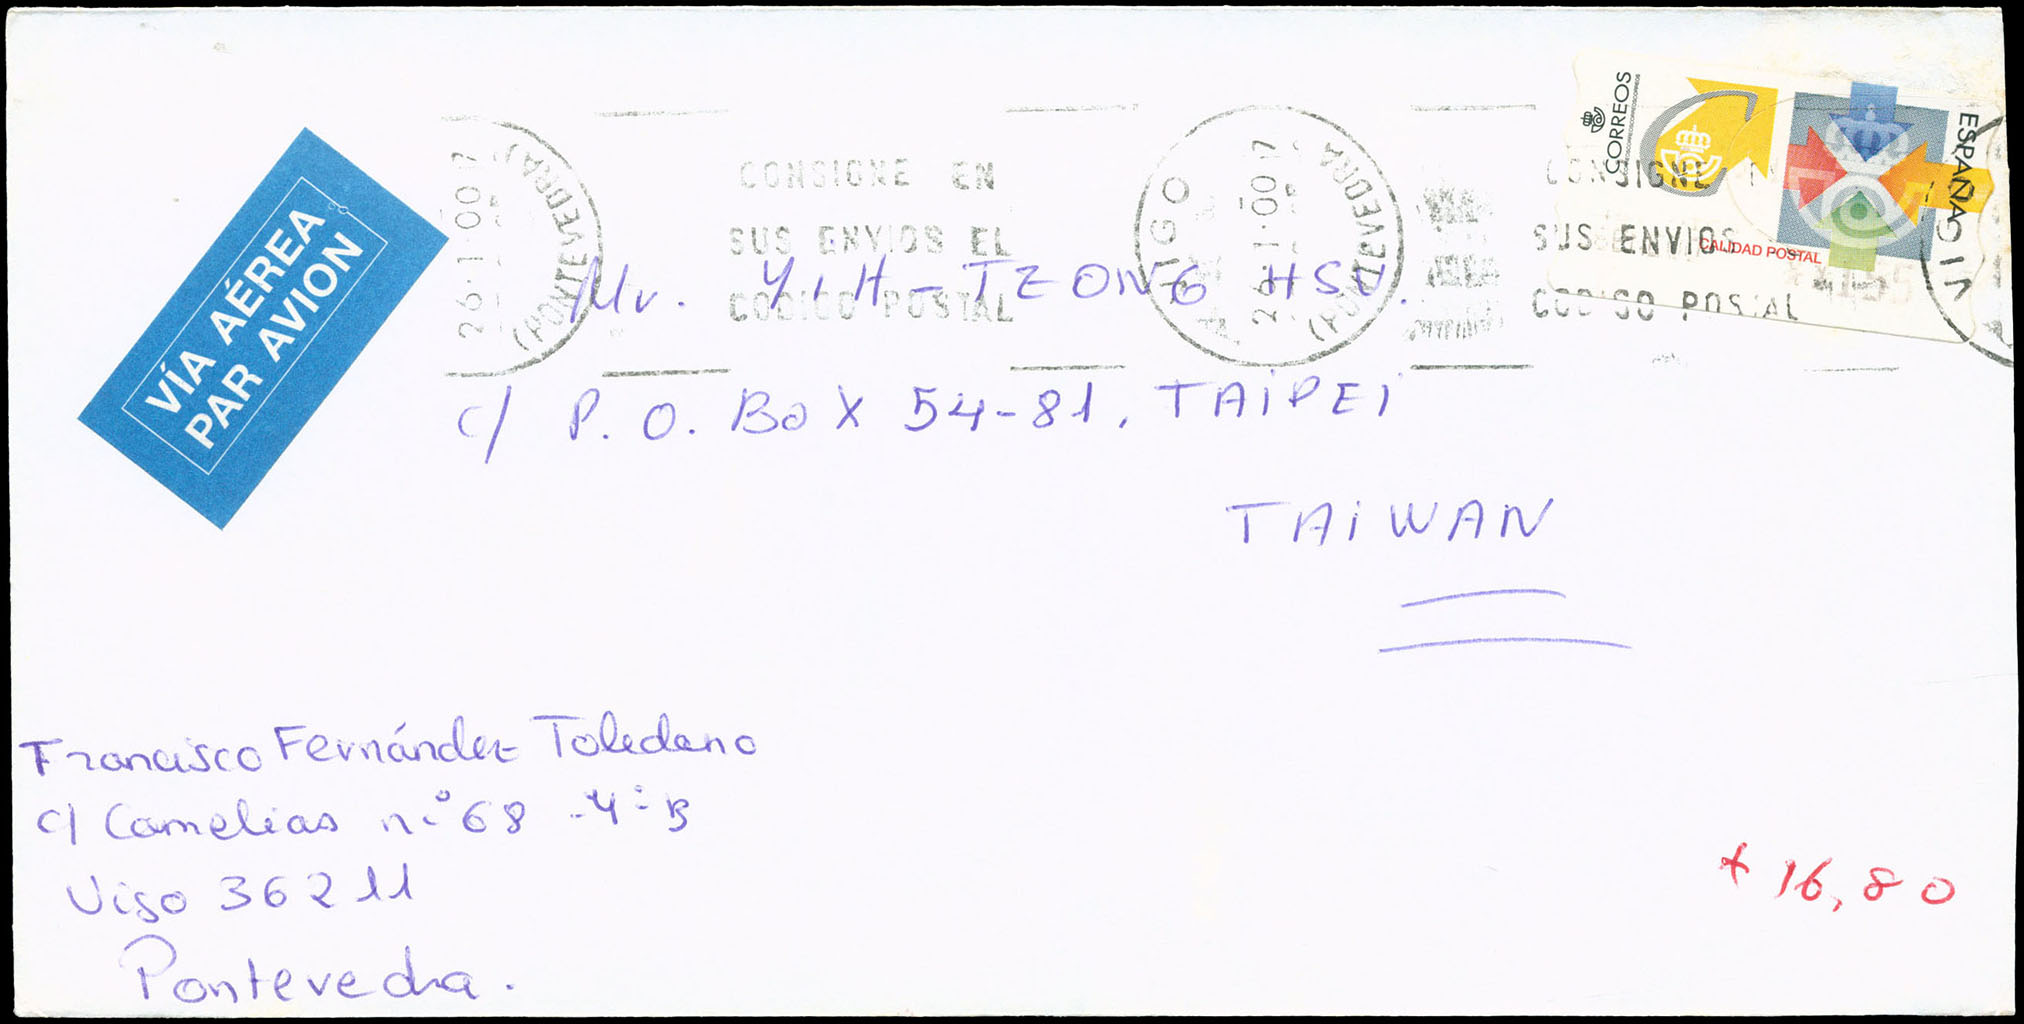 CORREOS
ESPAÑA
CALIDAD POSTAL
VÍA AÉREA
PAR AVION
26·1·00 17
(PONTEVEDRA)
CONSIGNE EN
SUS ENVIOS EL
CODIGO POSTAL
VIGO
26·1·00 17
(PONTEVEDRA
CONSIGNE
SUS ENVIOS
CODIGO POSTAL
VIGO
Mr. YIH-TZONG HSU.
c/ P. O. Box 54-81, TAiPEi
TAiWAN
Francisco Fernández Toledano
c/ Camelias nº 68 - 4º B
Vigo 36211
Pontevedra.
+ 16,80